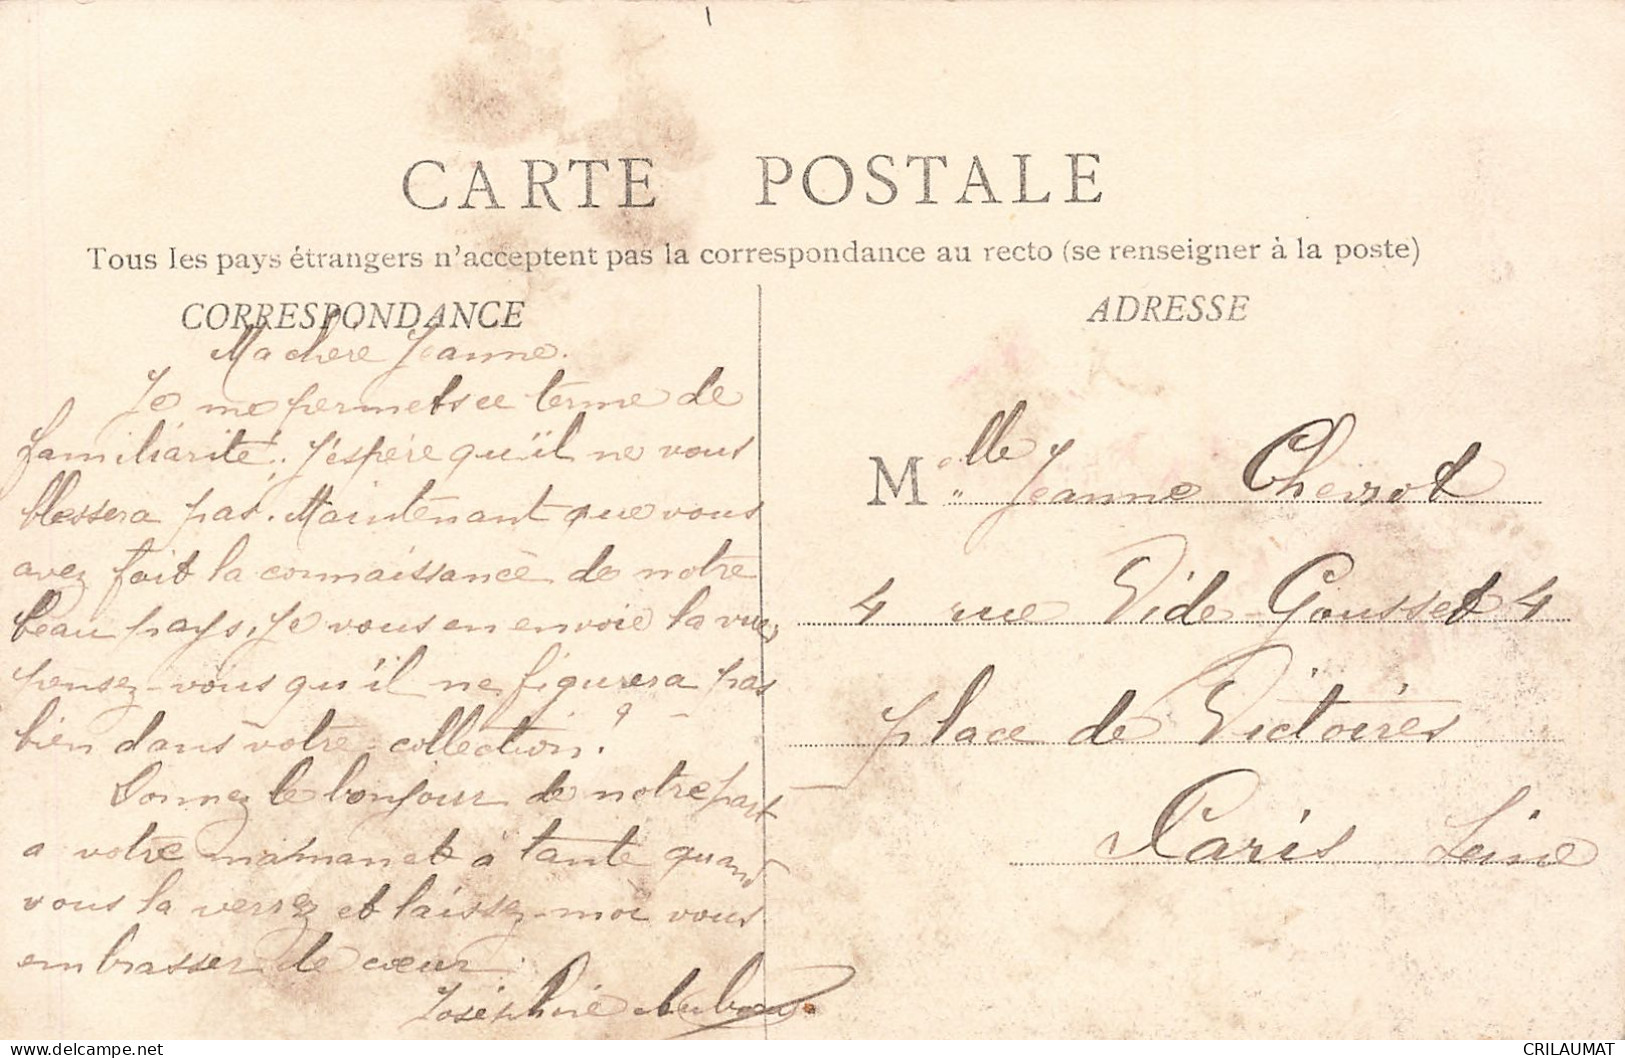 CARTE POSTALE
Tous les pays étrangers n'acceptent pas la correspondance au recto (se renseigner à la poste)
CORRESPONDANCE
Ma chère Jeanne.
Je me permets ce terme de
familiarité. J'éspère qu'il ne vous
blessera pas. Maintenant que vous
avez fait la connaissance de notre
beau pays, Je vous en envoie la vue,
pensez-vous qu'il ne figurera pas
bien dans votre collection?
Donnez le bonjour de notre part
a votre maman et à tante quand
vous la verrez et laissez-moi vous
embrasser de cœur.
Joséphine
ADRESSE
M elle Jeanne
4 rue Vide-Gousset 4
place de Victoires
Paris Seine
CRILAUMAT